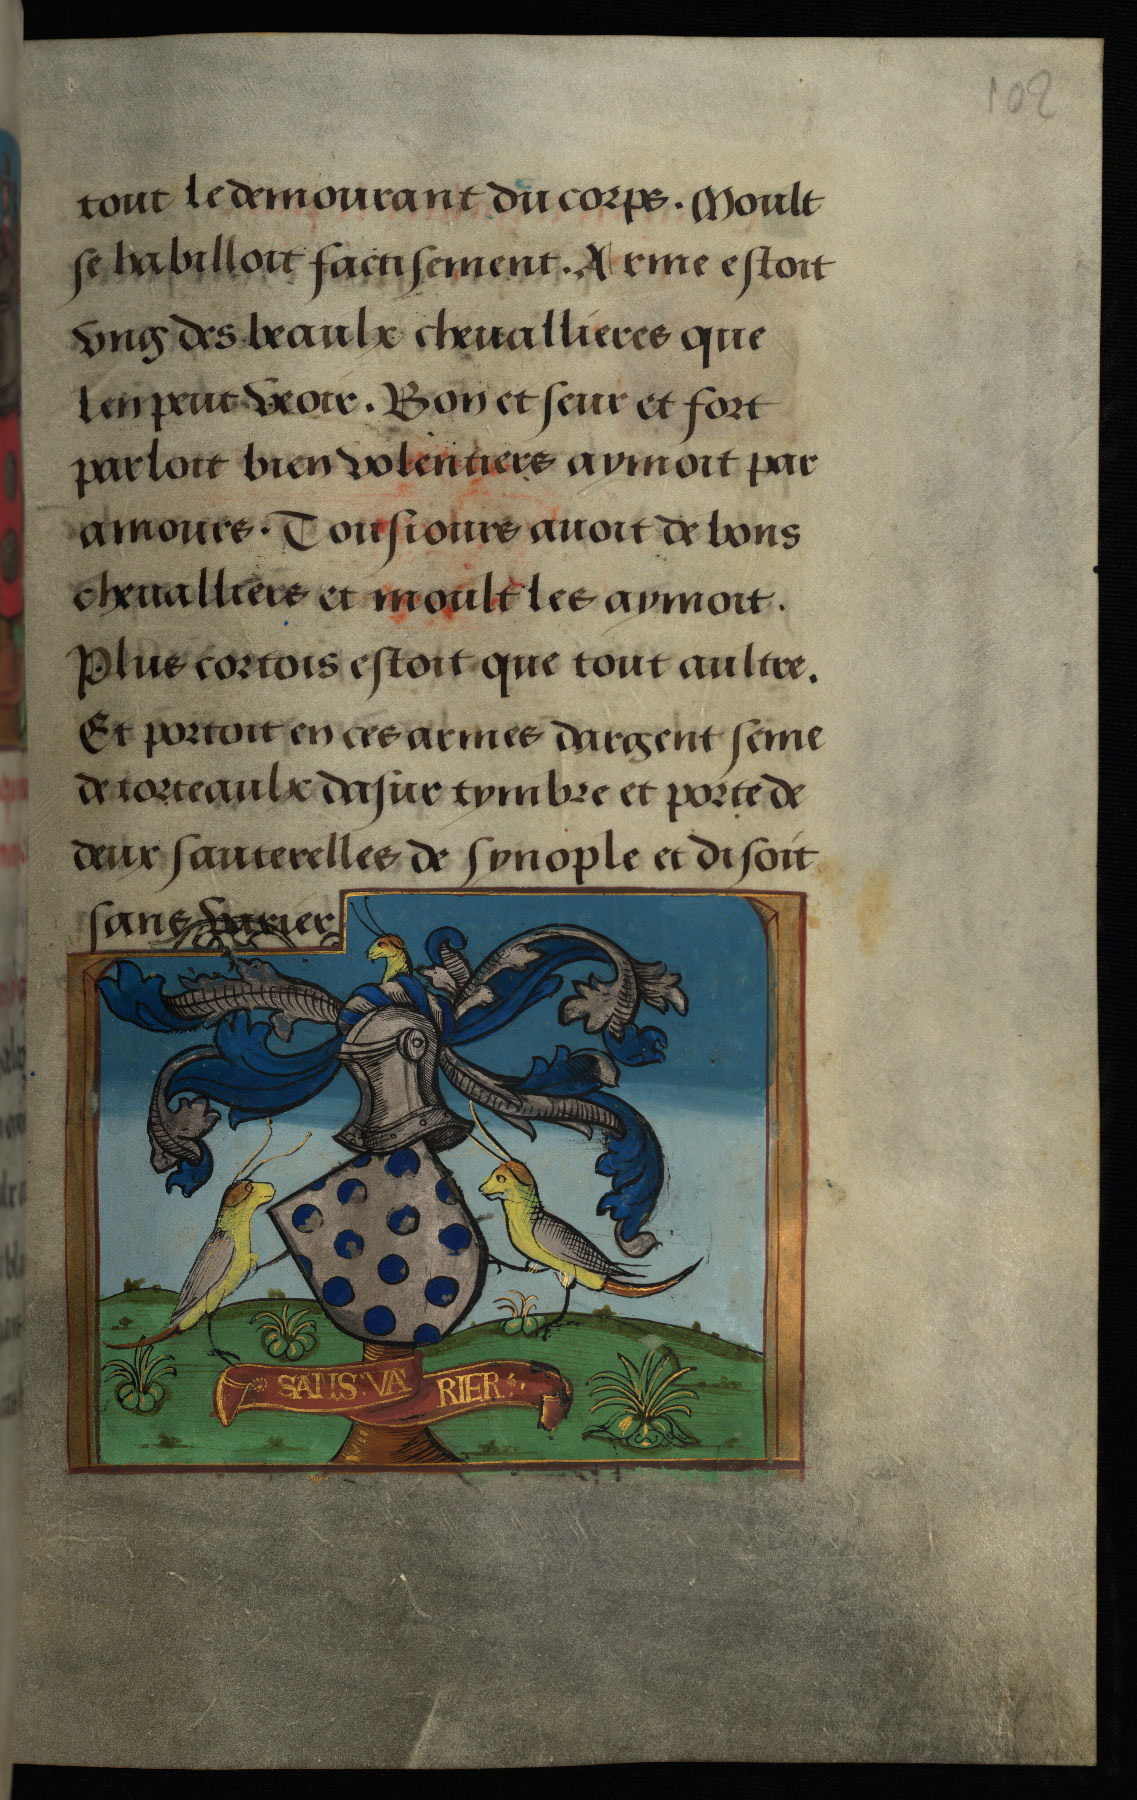 102
tout le demourant du corps. Moult
se habilloit factisement. Arme estoit
vng des beaulx cheuallieres que
len peut veoir. Bon et seur et fort
parloit bien volentiers aymoit par
amours. Tousiours auoit de bons
cheualliers et moult les aymoit.
Plus cortois estoit que tout aultre.
Et portoit en ces armes dargent seme
de torteaulx dasur tymbre et porte de
deux sauterelles de synople et disoit
sans varier
SANS VA RIER